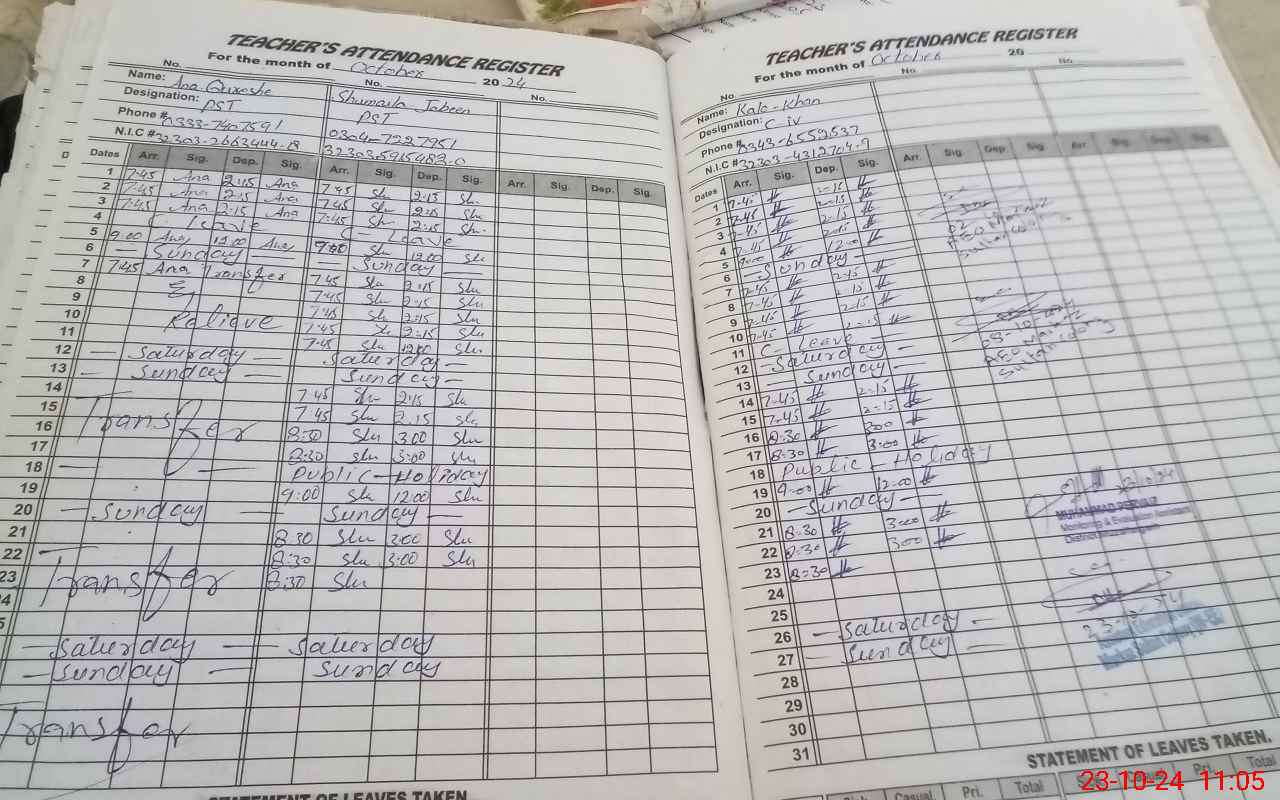 TEACHER'S ATTENDANCE REGISTER
For the month of October 2024
No. No. No.
Name: Ana Qureshe Shumaila Jabeen
Designation: PST PST
Phone # 0333-7407591 0304-7227951
N.I.C # 32303-2663444-8 32303-5915482-0
Dates Arr. Sig. Dep. Sig. Arr. Sig. Dep. Sig. Arr. Sig. Dep. Sig.
1 7:45 Ana 2:15 Ana 7:45 Slu 2:15 Slu
2 7:45 Ana 2:15 Ana 7:45 Slu 2:15 Slu
3 7:45 Ana 2:15 Ana 7:45 Slu 2:15 Slu
4 C. leave C - Leave
5 9:00 Ana 12:00 Ana 9:00 Slu 12:00 Slu
6 — Sunday — — Sunday —
7 7:45 Ana Transfer 7:45 Slu 2:15 Slu
8 & 7:45 Slu 2:15 Slu
9 7:45 Slu 2:15 Slu
10 Relieve 7:45 Slu 2:15 Slu
11 7:45 Slu 12:00 Slu
12 — Saturday — — Saturday —
13 — Sunday — Sunday —
14 7:45 Slu 2:15 Slu
15 Transfer 7:45 Slu 2:15 Slu
16 8:30 Slu 3:00 Slu
17 8:30 Slu 3:00 Slu
18 — — Public - Holiday
19 9:00 Slu 12:00 Slu
20 — Sunday — Sunday —
21 8:30 Slu 3:00 Slu
22 8:30 Slu 3:00 Slu
23 Transfer 8:30 Slu
— Saturday — Saturday
— Sunday — Sunday
Transfer
STATEMENT OF LEAVES TAKEN
TEACHER'S ATTENDANCE REGISTER
For the month of October 20
No. No. No.
Name: Kalo-Khan
Designation: C-iv
Phone # 0343-6559537
N.I.C # 32303-4312704-9
Dates Arr. Sig. Dep. Sig. Arr. Sig. Dep. Sig. Arr. Sig. Dep. Sig.
1 7-45 2-15
2 7-45 2-15
3 7-45 2-15
4 7-45 2-15
5 9-00 12-00
6 — Sunday —
7 7-45 2-15
8 7-45 2-15
9 7-45 2-15
10 7-45 2-15
11 C - Leave
12 — Saturday —
13 — Sunday —
14 7-45 2-15
15 7-45 2-15
16 8-30 300
17 8-30 3-00
18 Public - Holiday
19 9-00 12-00
20 — Sunday —
21 8-30 3-00
22 8-30 300
23 8-30
24
25
26 — Saturday —
27 — Sunday —
28
29
30
31
Monitoring & Evaluation Assistant
STATEMENT OF LEAVES TAKEN.
Casual Pri. Total Pri. Total
23-10-24 11:05